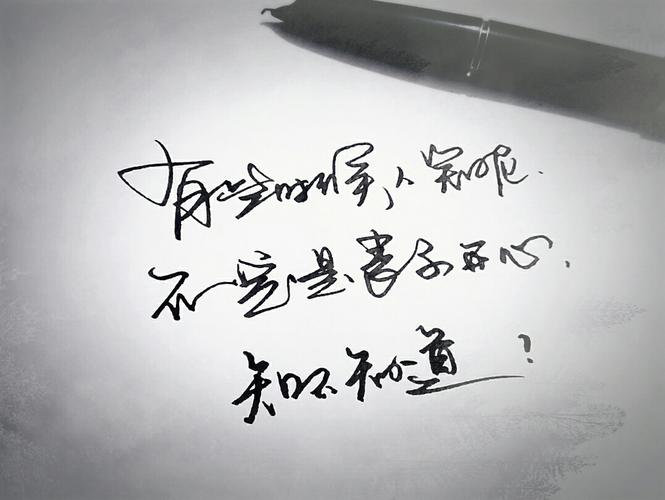 有些时候,人笑呢.
不一定是表示开心.
知不知道?